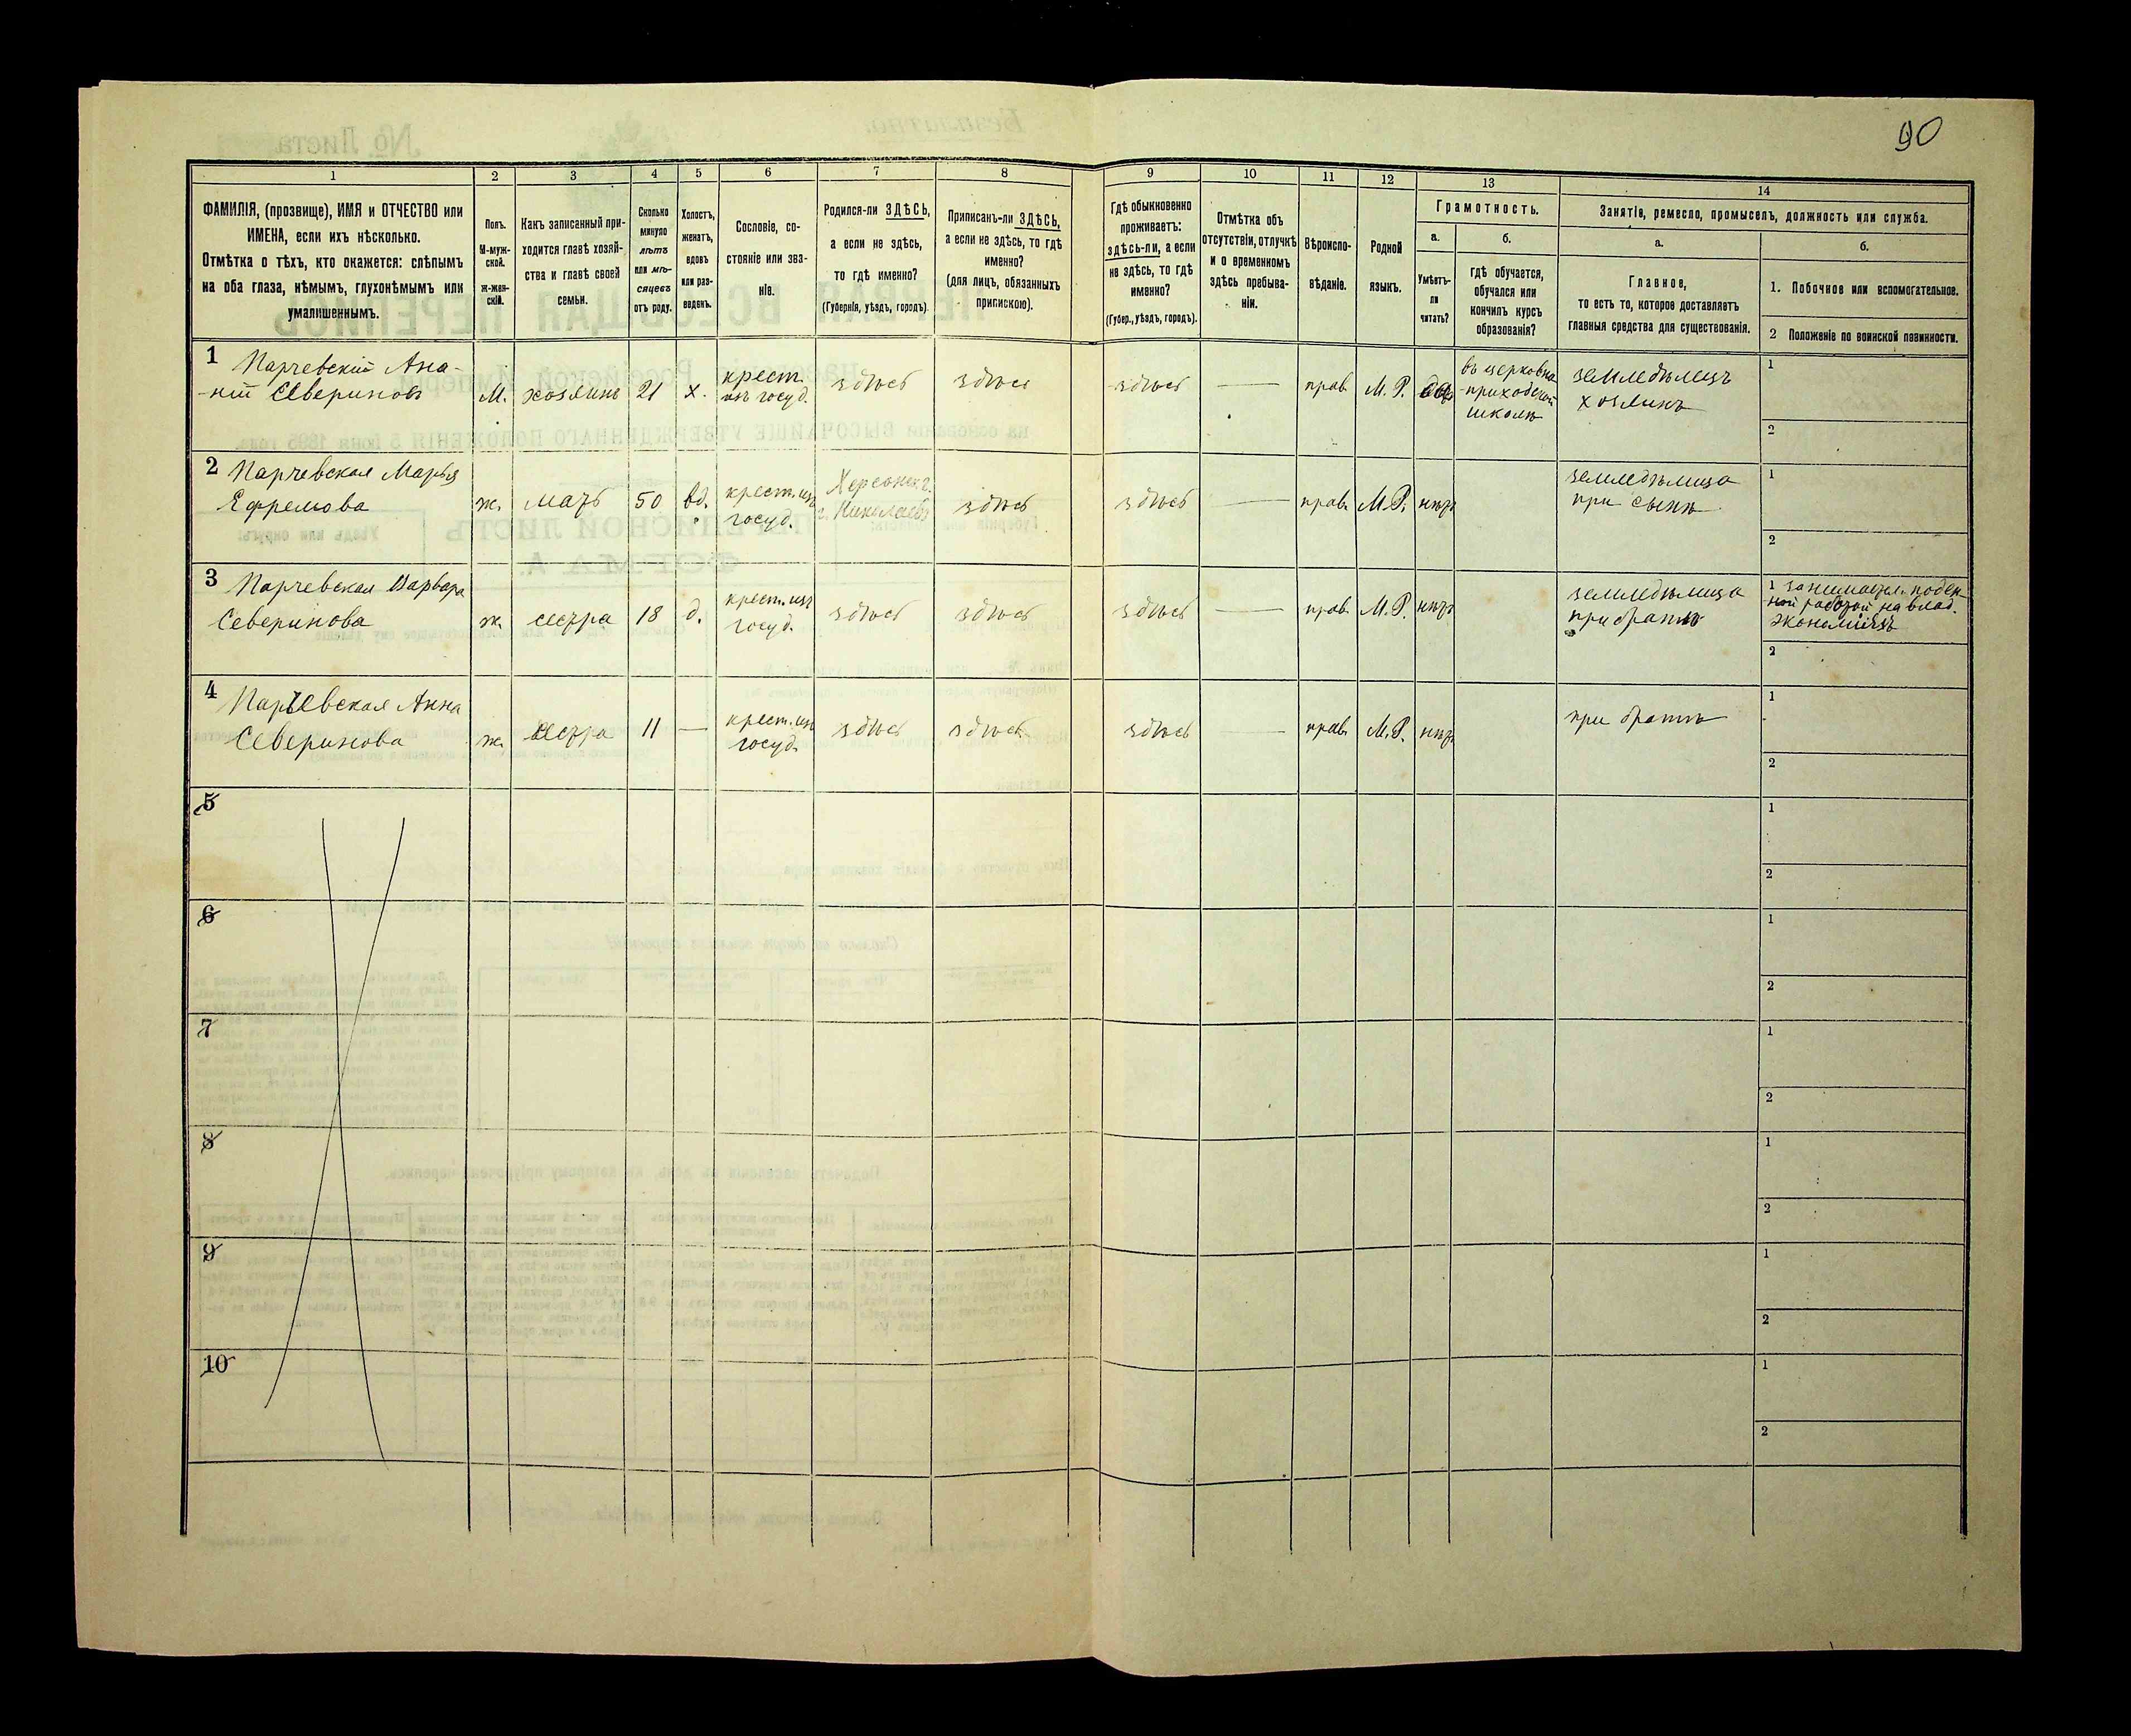 90
1
2
3
4
5
6
7
8
9
10
11
12
13
14
ФАМИЛІЯ, (прозвище), ИМЯ и ОТЧЕСТВО или
ИМЕНА, если ихъ нѣсколько.
Отмѣтка о тѣхъ, кто окажется: слѣпымъ
на оба глаза, нѣмымъ, глухонѣмымъ или
умалишеннымъ.
Полъ.
М-муж-
ской.
ж-жен-
скій.
Какъ записанный при-
ходится главѣ хозяй-
ства и главѣ своей
семьи.
Сколько
минуло
лѣтъ
или мѣ-
сяцевъ
отъ роду.
Холостъ,
женатъ,
вдовъ
или раз-
веденъ.
Сословіе, со-
стояніе или зва-
ніе.
Родился-ли ЗДѢСЬ,
а если не здѣсь,
то гдѣ именно?
(Губернія, уѣздъ, городъ).
Приписанъ-ли ЗДѢСЬ,
а если не здѣсь, то гдѣ
именно?
(для лицъ, обязанныхъ
припискою).
Гдѣ обыкновенно
проживаетъ:
здѣсь-ли, а если
не здѣсь, то гдѣ
именно?
(Губер., уѣздъ, городъ).
Отмѣтка объ
отсутствіи, отлучкѣ
и о временномъ
здѣсь пребыва-
ніи.
Вѣроиспо-
вѣданіе.
Родной
языкъ.
Грамотность.
а.
Умѣетъ-
ли
читать?
б.
гдѣ обучается,
обучался или
кончилъ курсъ
образованія?
Занятіе, ремесло, промыселъ, должность или служба.
а.
Главное,
то есть то, которое доставляетъ
главныя средства для существованія.
б.
1. Побочное или вспомогательное.
2 Положеніе по воинской повинности.
1 Парчевскій Ана-
ній Севериновъ
М.
хозяинъ
21
х.
крест.
изъ госуд.
здѣсь
здѣсь
здѣсь
—
прав.
М. Р.
да
въ церковно
приходской
школѣ
земледѣлецъ
хозяинъ
1
2
2 Парчевская Марья
Ефремова
ж.
мать
50
вд.
крест. изъ
госуд.
Херсонск. г.
г. Николаевъ
здѣсь
здѣсь
—
прав.
М.Р.
нѣтъ
земледѣлица
при сынѣ
1
2
3 Парчевская Варвара
Северинова
ж.
сестра
18
д.
крест. изъ
госуд.
здѣсь
здѣсь
здѣсь
—
прав.
М.Р.
нѣтъ
земледѣлица
при братѣ
1 занимается поден-
ной работой на влад.
экономіяхъ
2
4 Парчевская Анна
Северинова
ж.
сестра
11
—
крест. изъ
госуд.
здѣсь
здѣсь
здѣсь
—
прав.
М.Р.
нѣтъ
при братѣ
1
2
5
1
2
6
1
2
7
1
2
8
1
2
9
1
2
10
1
2